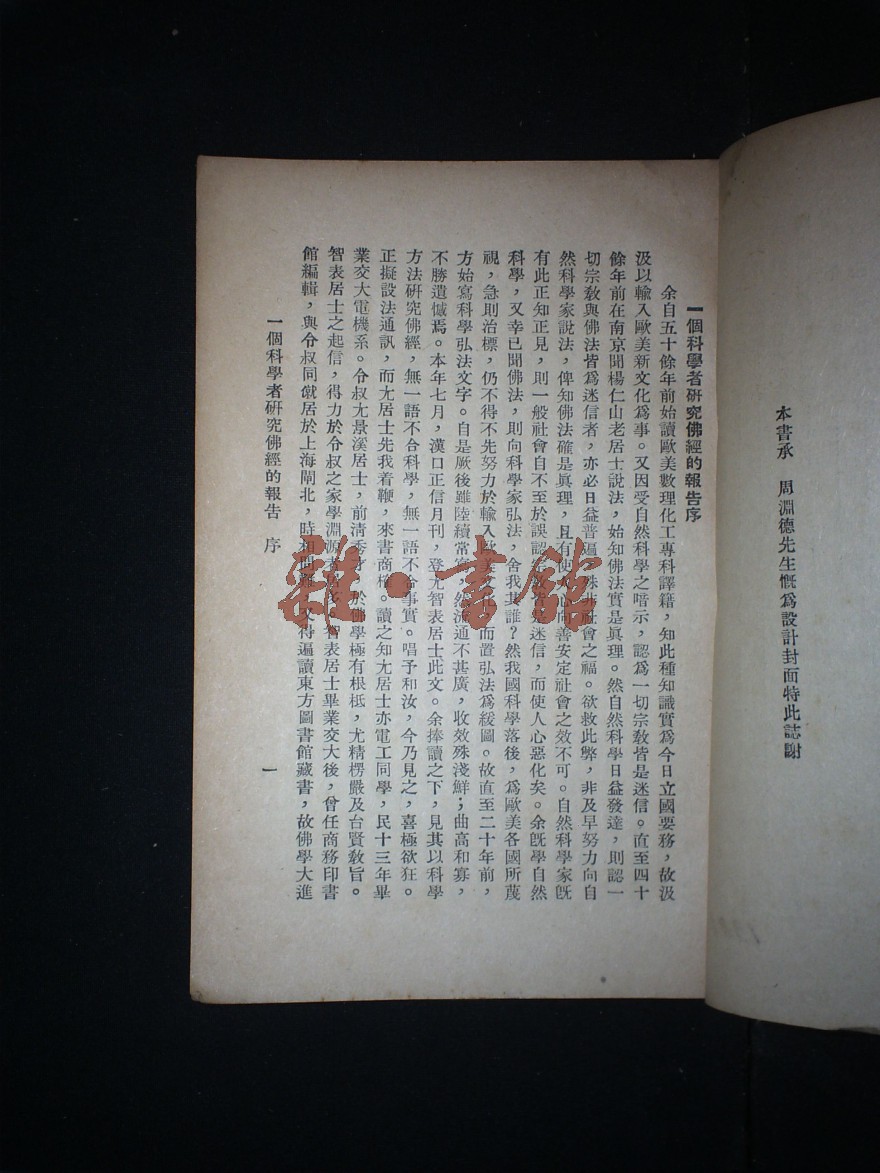 本書承　周淵德先生慨爲設計封面特此誌謝
一個科學者研究佛經的報告序
余自五十餘年前始讀歐美數理化工專科譯籍，知此種知識實爲今日立國要務，故汲
汲以輸入歐美新文化爲事。又因受自然科學之啃示，認爲一切宗教皆是迷信。直至四十
餘年前在南京聞楊仁山老居士說法，始知佛法實是眞理。然自然科學日益發達，則認一
切宗教與佛法皆爲迷信者，亦必日益普遍，殊非社會之福。欲救此弊，非及早努力向自
然科學家說法，俾知佛法確是眞理，且有使人心向善安定社會之效不可。自然科學家旣
有此正知正見，則一般社會自不至於誤認宗教皆是迷信，而使人心惡化矣。余旣學自然
科學，又幸已聞佛法，則向科學家弘法，舍我其誰？然我國科學落後，爲歐美各國所蔑
視，急則治標，仍不得不先努力於輸入歐美文化，而置弘法爲緩圖。故直至二十年前，
方始寫科學弘法文字。自是厥後雖陸續常寫，然流通不甚廣，收效殊淺鮮；曲高和寡，
不勝遺憾焉。本年七月，漢口正信月刊，登尤智表居士此文。余捧讀之下，見其以科學
方法硏究佛經，無一語不合科學，無一語不合事實。唱予和汝，今乃見之，喜極欲狂。
正擬設法通訊，而尤居士先我着鞭，來書商榷。讀之知尤居士亦電工同學，民十三年畢
業交大電機系。令叔尤景溪居士，前淸秀才，於佛學極有根柢，尤精楞嚴及台賢敎旨。
智表居士之起信，得力於令叔之家學淵源者居多。智表居士畢業交大後，曾任商務印書
館編輯，與令叔同僦居於上海閘北，時相問難，又得遍讀東方圖書館藏書，故佛學大進
一個科學者硏究佛經的報告　序
一
雜·書館